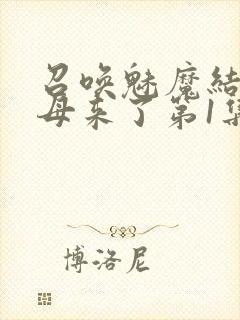 召唤魅魔结
母来了第1集
博洛尼